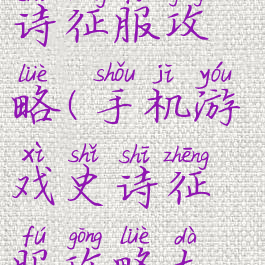 诗征服攻
lüè shǒu jī yóu
略(手机游
xì shǐ shī zhēng
戏史诗征
fú gōng lüè dà
服攻略大